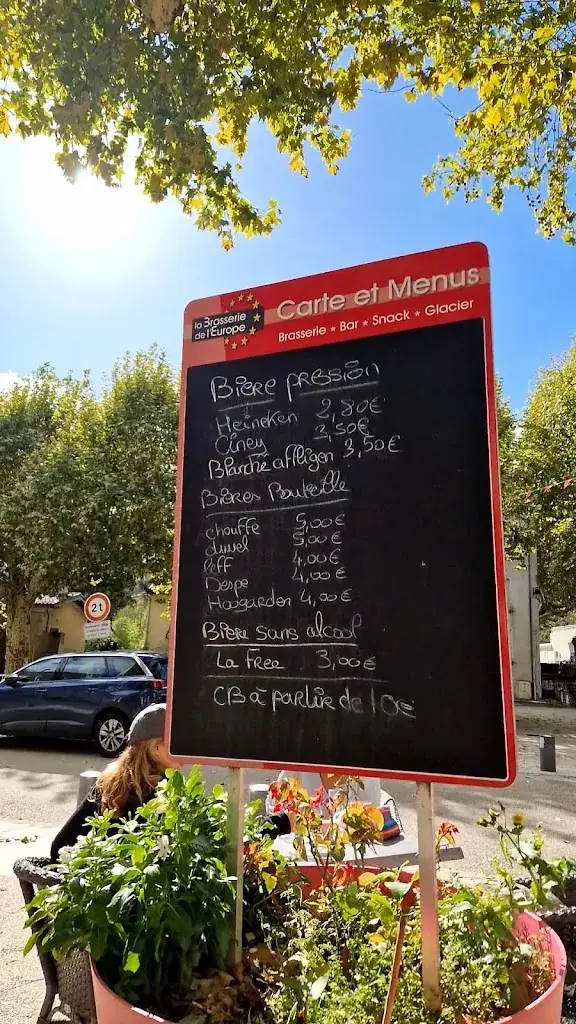 la Brasserie
de l'Europe
Carte et Menus
Brasserie * Bar * Snack * Glacier
Bière pression
Heineken 2,80€
Ciney 3,50€
Blanche affligen 3,50€
Bières Bouteille
chouffe 5,00€
duvel 5,00€
leff 4,00€
Despe 4,00€
Hoogarden 4,00€
Bière sans alcool
La Free 3,00€
CB à partire de 10€
2t